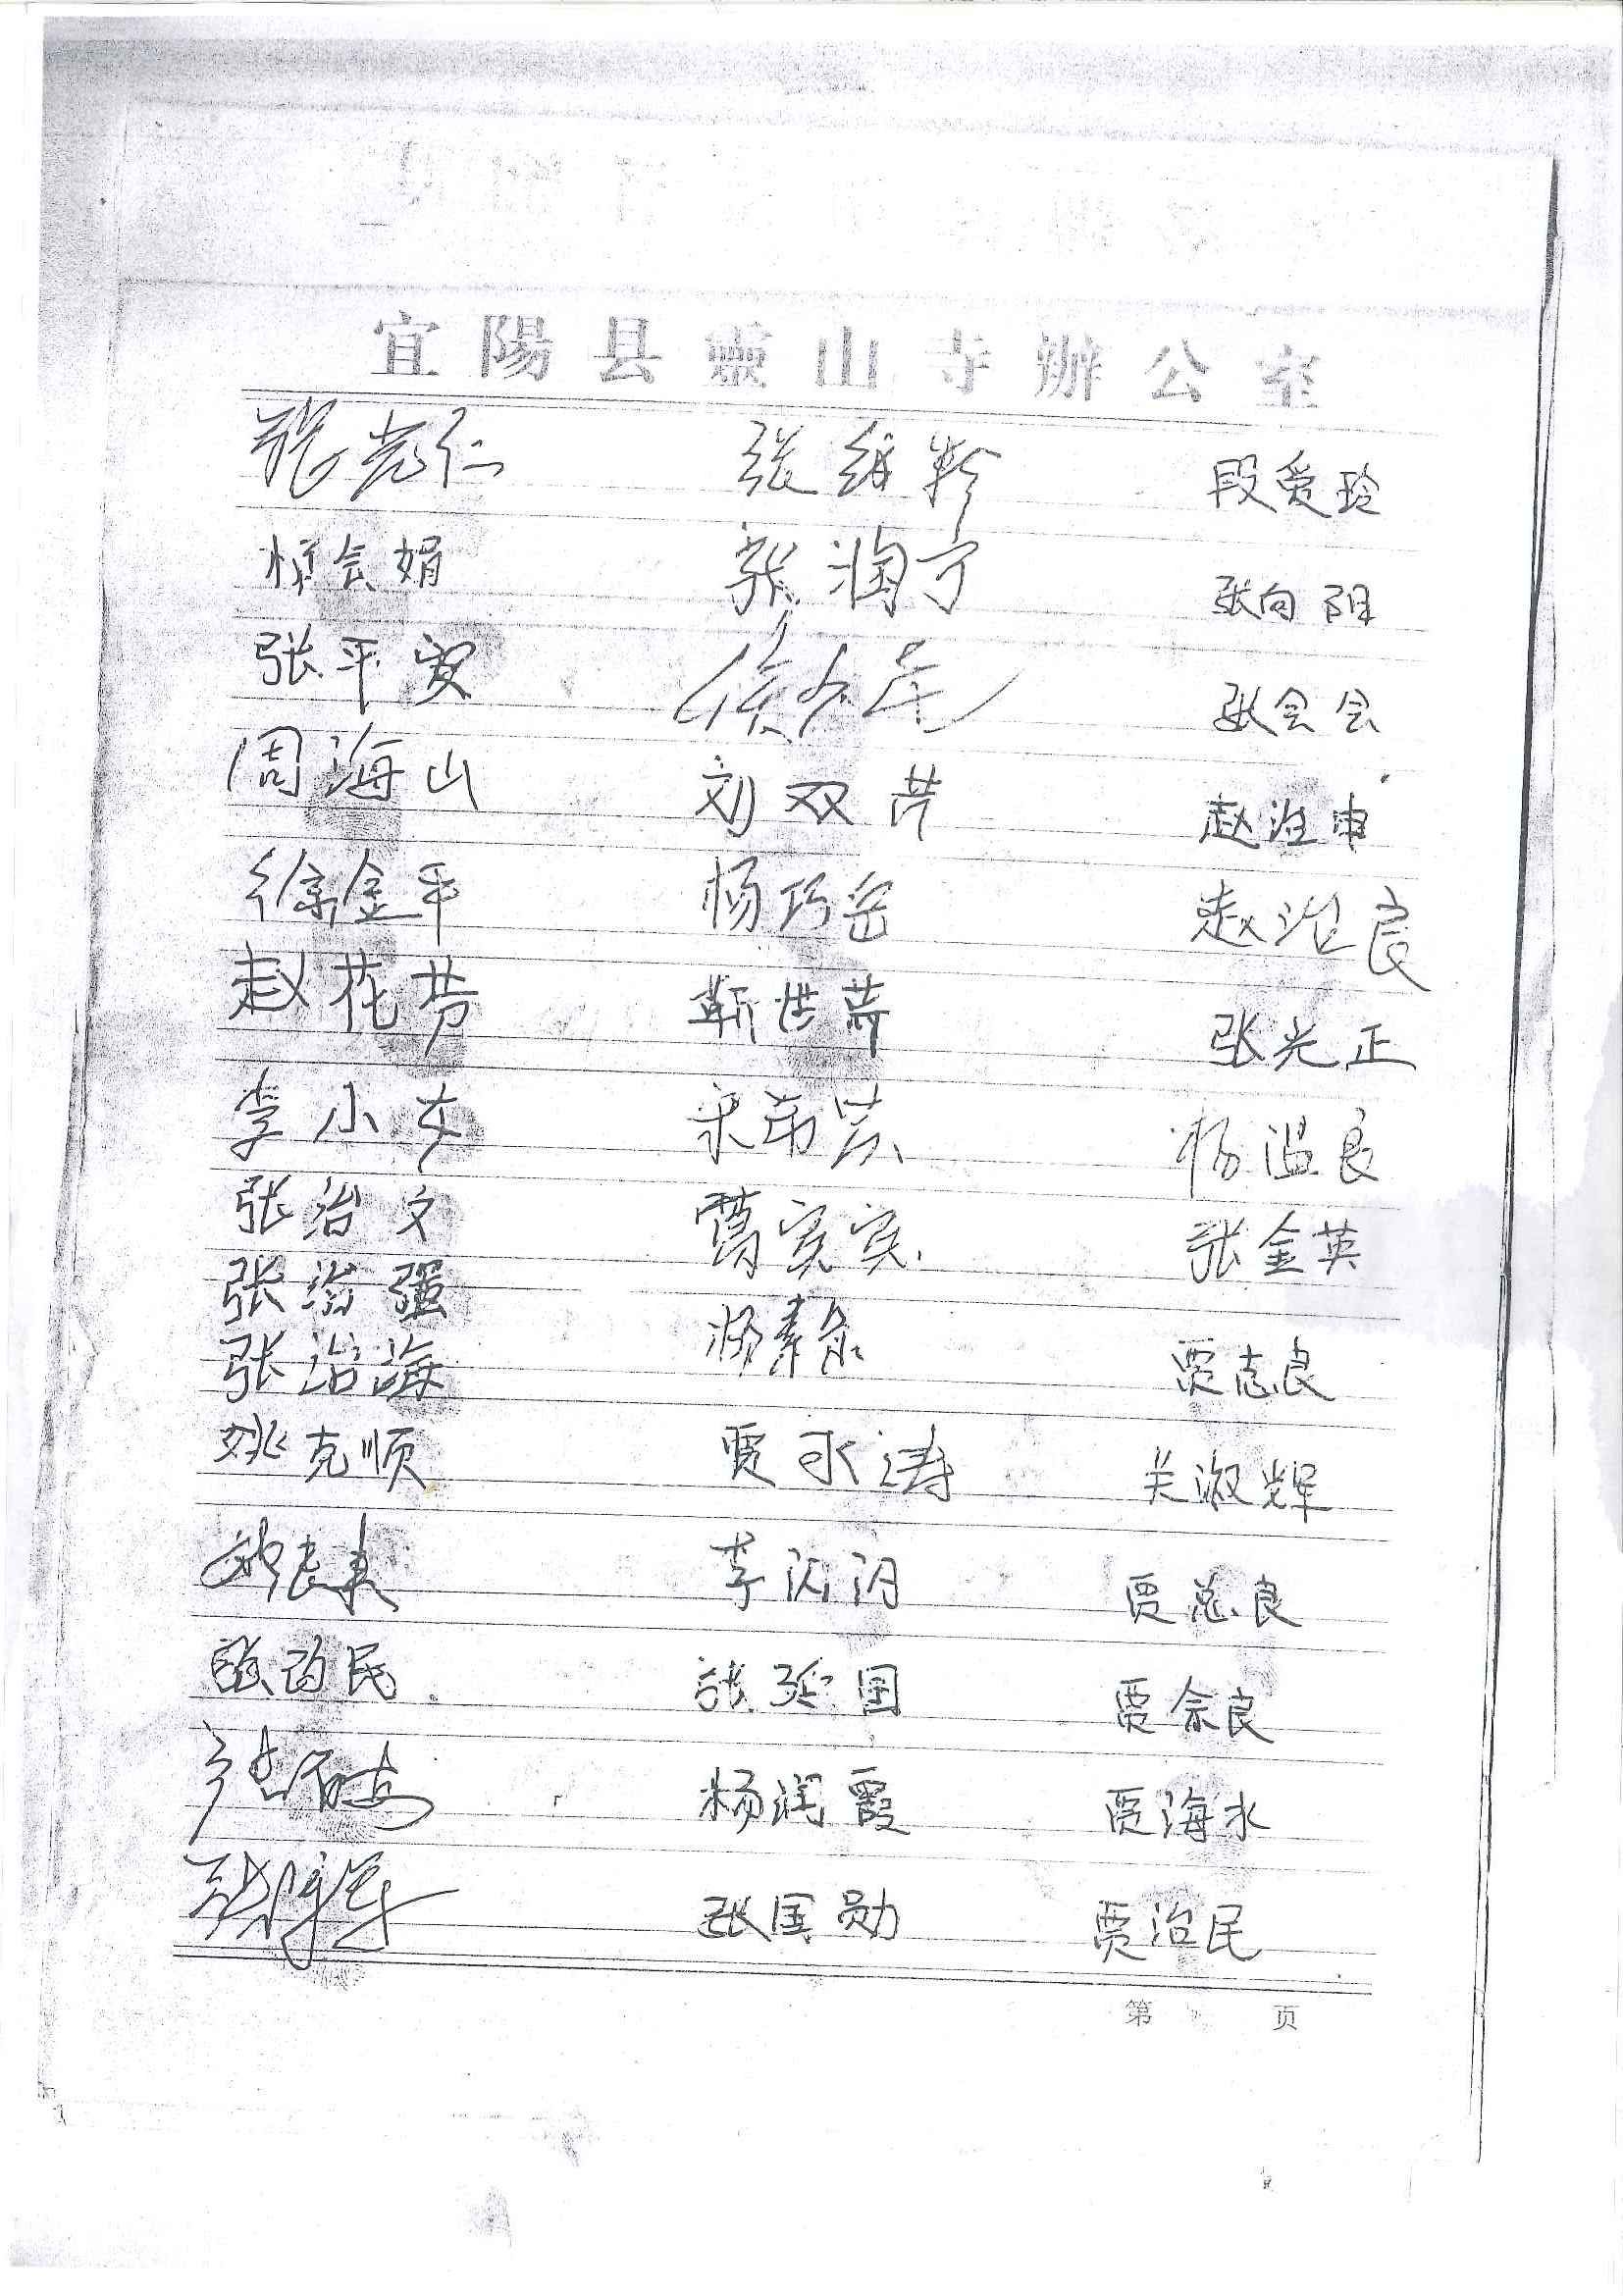 宜陽县靈山寺辦公室
张光仁 张维粉 段爱玲
会娟 张润宁 张向阳
张平安 侯 张会会
周海山 刘双芹 赵治申
徐金平 杨巧 赵治良
赵花芳 靳世芳 张光正
李小女 芸 杨温良
张治文 葛寅寅 张金英
张治强
张治海 杨素 贾志良
姚克顺 贾永涛 关淑辉
李闪闪 贾总良
张百民 张延国 贾余良
杨润霞 贾海水
张军 张国勋 贾治民
第 页